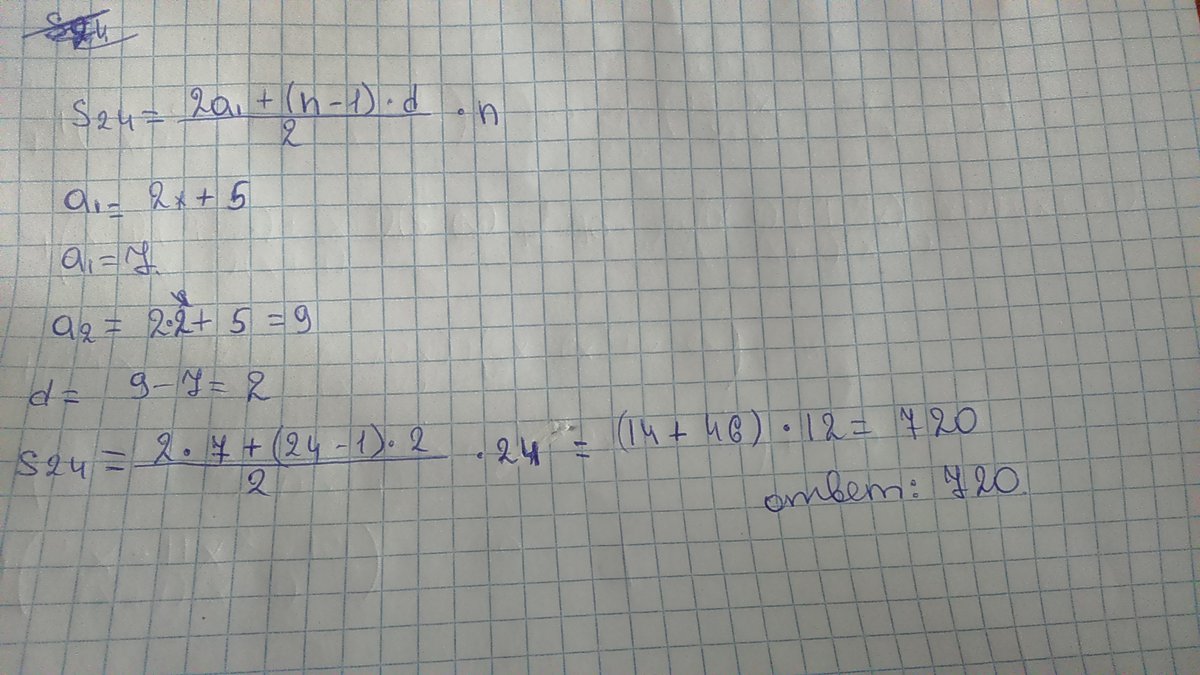 S24 = (2a1 + (n - 1) · d) / 2 · n
a1 = 2x + 5
a1 = 7
a2 = 2·2 + 5 = 9
d = 9 - 7 = 2
S24 = (2 · 7 + (24 - 1) · 2) / 2 · 24 = (14 + 46) · 12 = 720
ответ: 720